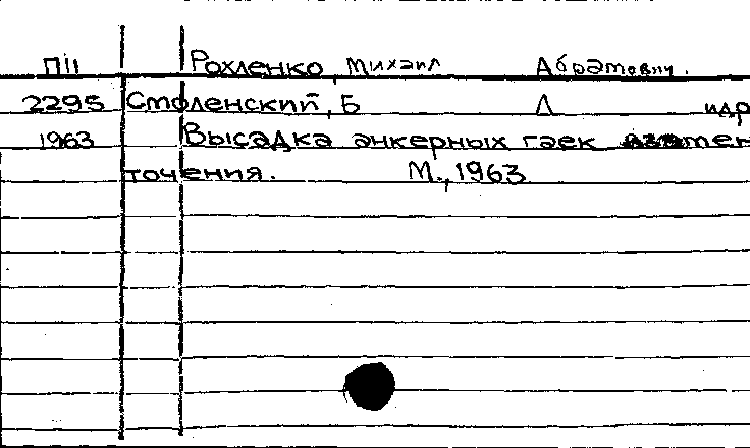 ПІІ Рохленко, Михаил Абрамович.
2295 Смоленский, Б Л идр
1963 Высадка анкерных гаек
точения. М., 1963